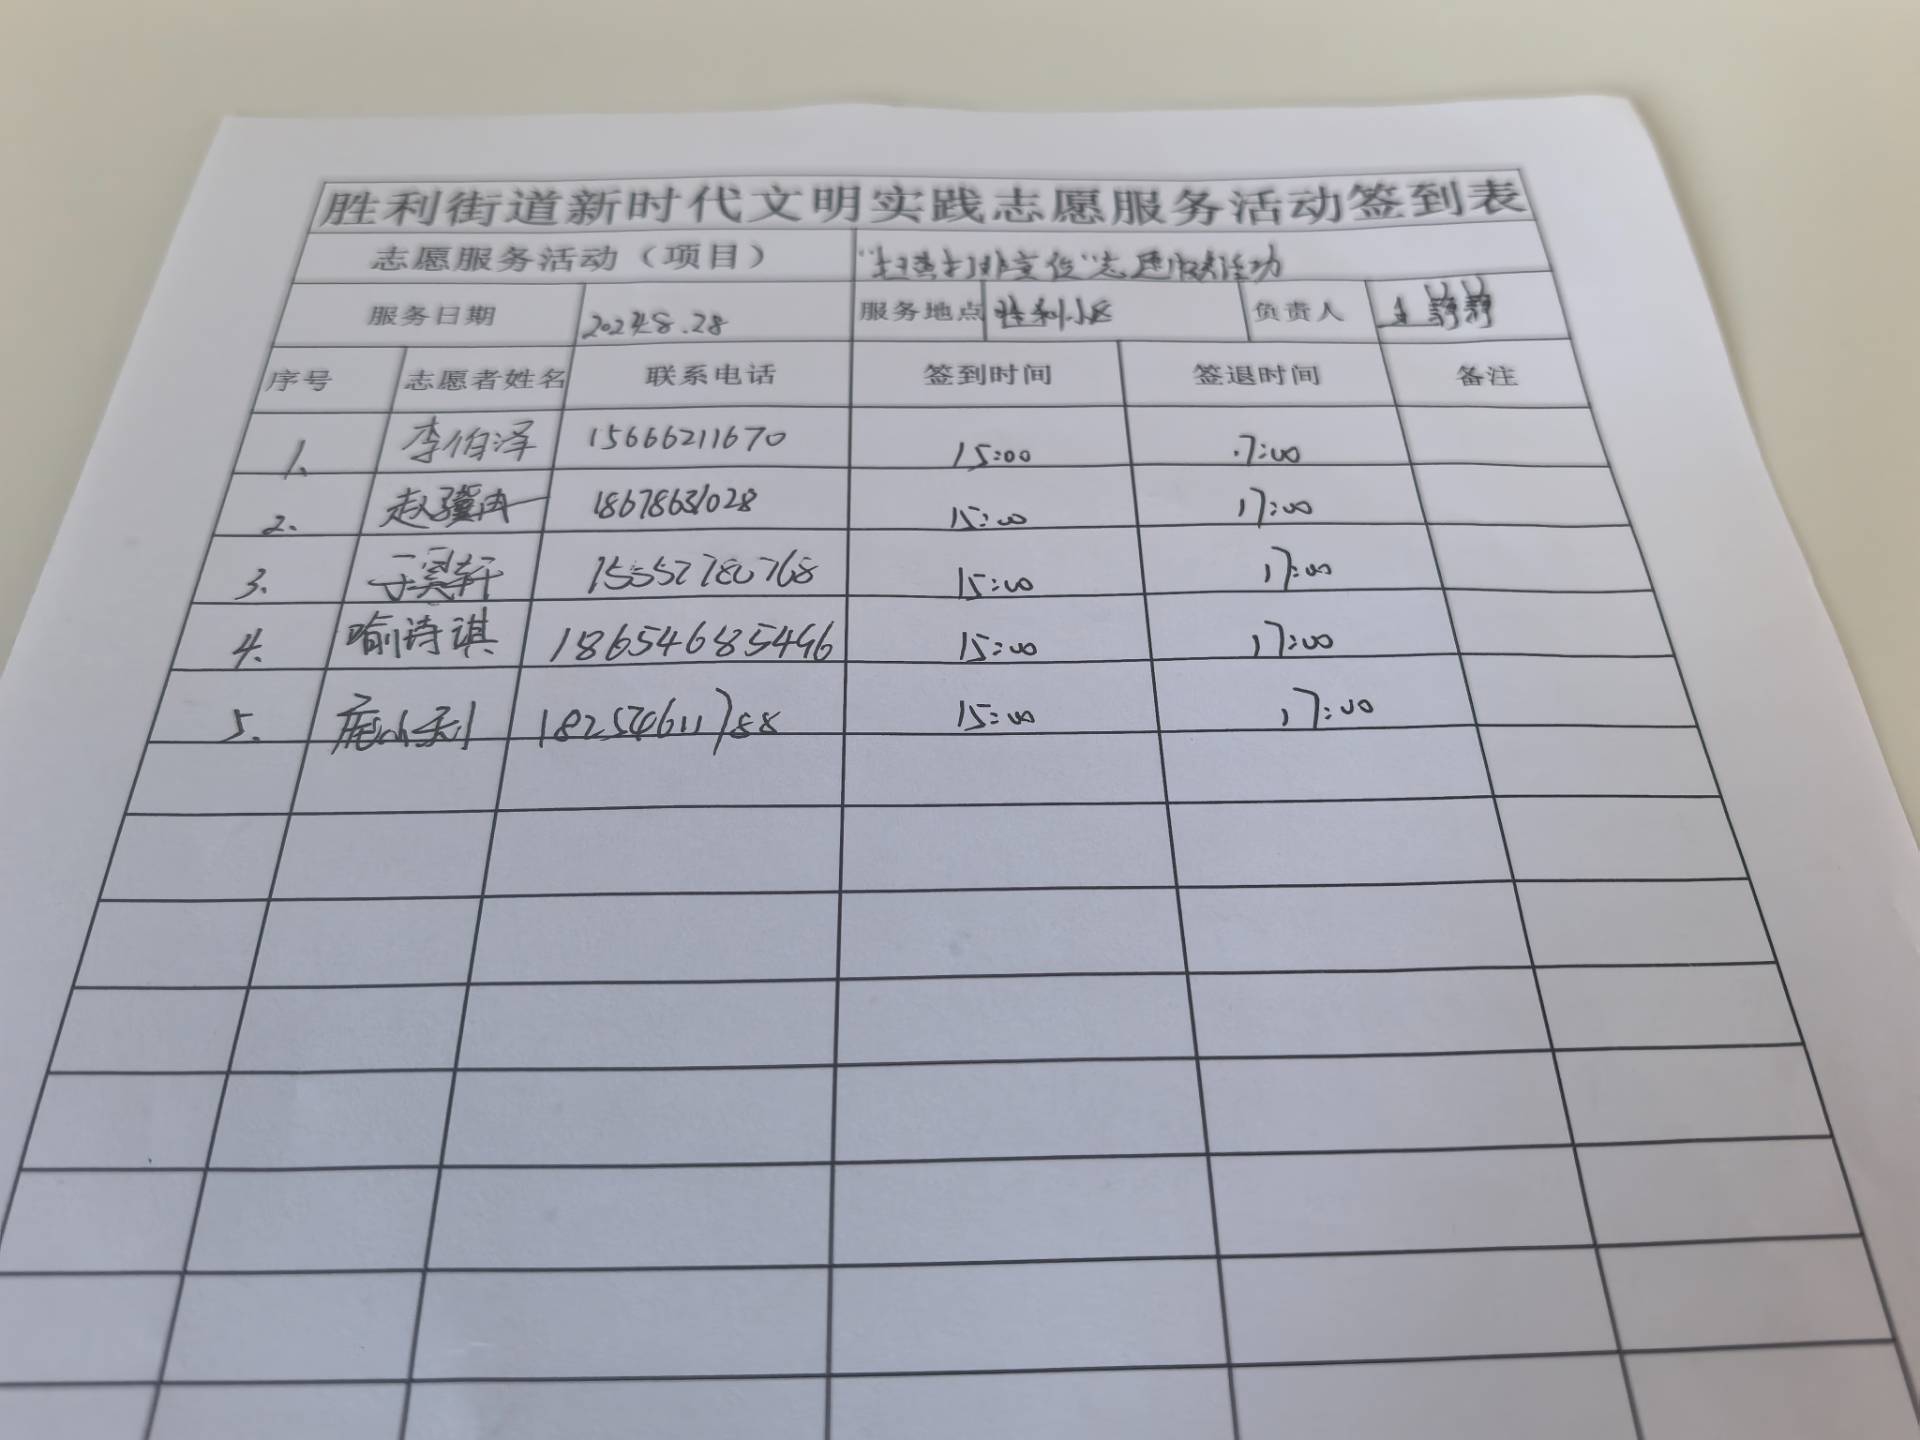 胜利街道新时代文明实践志愿服务活动签到表
志愿服务活动（项目） "扫黄打非宣传"志愿服务活动
服务日期 2024.8.28 服务地点 胜利小区 负责人 王静静
序号 志愿者姓名 联系电话 签到时间 签退时间 备注
1. 李伯泽 15666211670 15:00 17:00
2. 赵骥冉 18678631028 15:00 17:00
3. 于奕轩 15552780768 15:00 17:00
4. 喻诗淇 18654685446 15:00 17:00
5. 18254611788 15:00 17:00